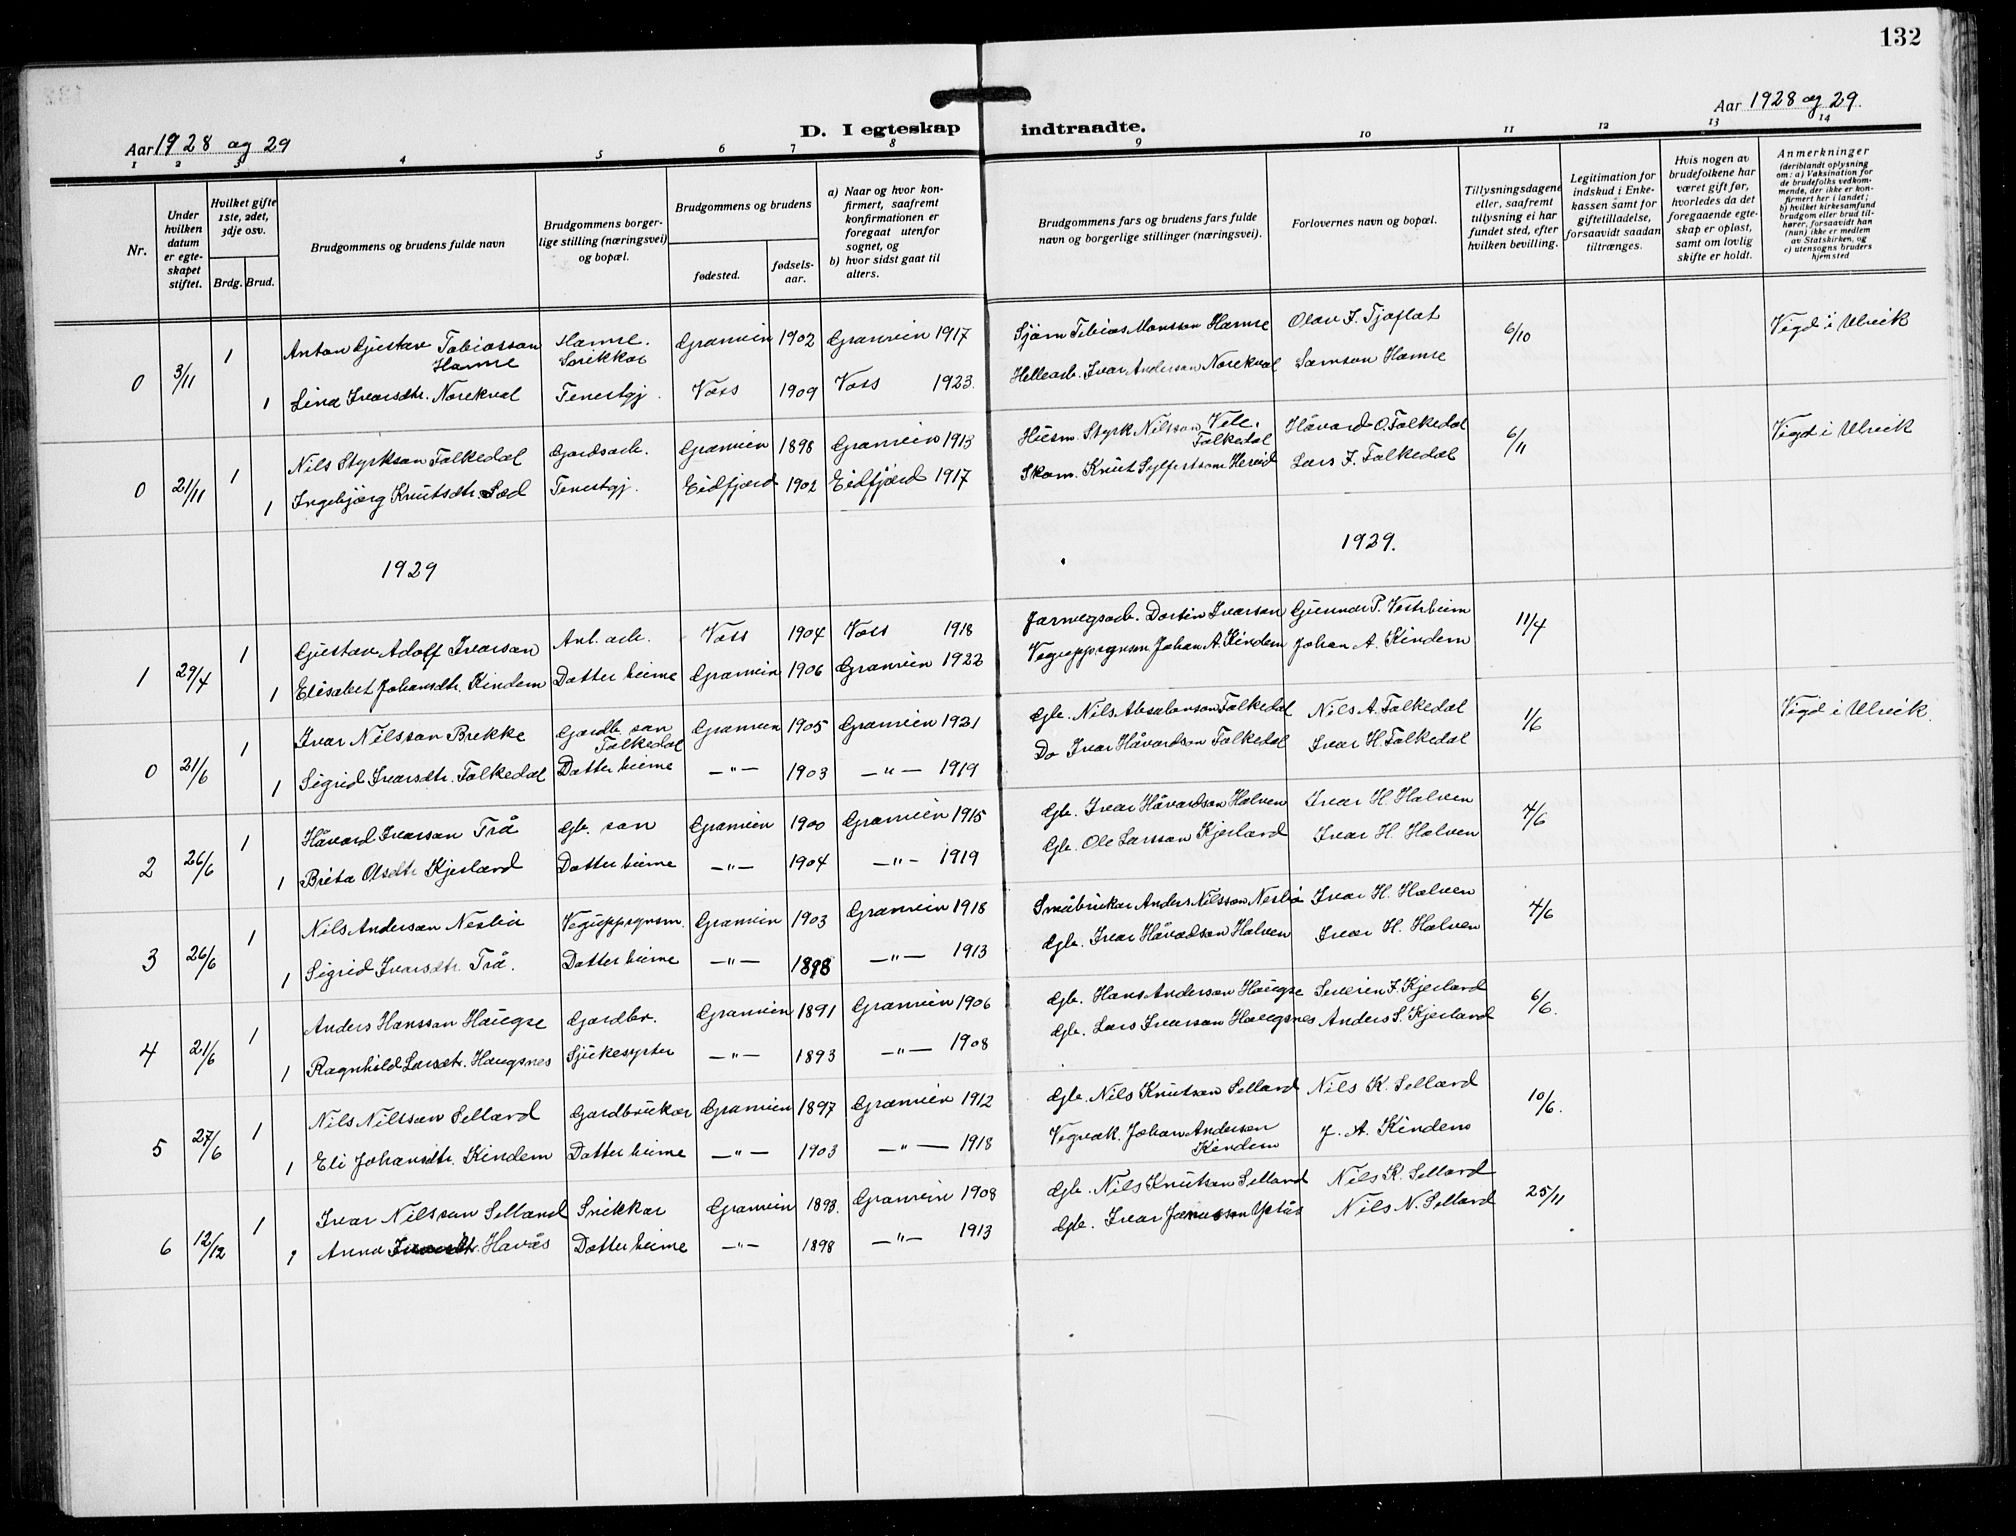 132
Aar 1928 og 29
D. I egteskap indtraadte.
Aar 1928 og 29.
1 2 3 4 5 6 7 8 9 10 11 12 13 14
Nr.
Under hvilken datum er egte-skapet stiftet.
Hvilket gifte 1ste, 2det, 3dje osv.
Brdg. Brud.
Brudgommens og brudens fulde navn
Brudgommens borger-lige stilling (næringsvei) og bopæl.
Brudgommens og brudens
fødested.
fødsels-aar.
a) Naar og hvor kon-firmert, saafremt konfirmationen er foregaat utenfor sognet, og
b) hvor sidst gaat til alters.
Brudgommens fars og brudens fars fulde navn og borgerlige stillinger (næringsvei).
Forlovernes navn og bopæl.
Tillysningsdagene eller, saafremt tillysning ei har fundet sted, efter hvilken bevilling.
Legitimation for indskud i Enke-kassen samt for giftetilladelse, forsaavidt saadan tiltrænges.
Hvis nogen av brudefolkene har været gift før, hvorledes da det foregaaende egte-skap er opløst, samt om lovlig skifte er holdt.
Anmerkninger (deriblandt oplysning om: a) Vaksination for de brudefolks vedkom-mende, der ikke er kon-firmert her i landet; b) hvilket kirkesamfund brudgom eller brud til-hører, forsaavidt han (hun) ikke er medlem av Statskirken, og c) utensogns bruders hjemsted
0 3/11 1 Anton Gustav Tobiasson Hamre Hamre. Snikkar Granvin 1902 Granvin 1917 Sjøm Tobias Monsson Hamre Olav F. Tjoflat 6/10 Vigd i Ulvik
1 Lina Ivarsdtr. Norekval Tenestgj. Voss 1909 Voss 1923. Hellearb. Ivar Anderson Norekval Samson Hamre
0 21/11 1 Nils Styrkson Folkedal Gardsarb. Granvin 1898 Granvin 1913 Husm. Styrk Nilsson Folkedal Håvard O. Folkedal 6/11 Vigd i Ulvik
1 Ingebjørg Knutsdtr. Sæd Tenestgj. Eidfjord 1902 Eidfjord 1917 Skom. Knut Sylfestson Hereid Lars J. Folkedal
1929
1929.
1 29/4 1 Gustav Adolf Ivarson Anl. arb. Voss 1904 Voss 1918 Jarnvegsarb. Dortin Ivarson Gunnar P. Vestrheim 11/4
1 Elisabet Johansdtr. Kindem Dotter heime Granvin 1906 Granvin 1922 Vegoppsynsm Johan A. Kindem Johan A. Kindem
0 21/6 1 Ivar Nilsson Brekke Gardb. son Folkedal Granvin 1905 Granvin 1921 Gb. Nils Absalonson Folkedal Nils A. Folkedal 1/6 Vigd i Ulvik.
1 Sigrid Ivarsdtr. Folkedal Dotter heime —"— 1903 —"— 1919 Do Ivar Håvardson Folkedal Ivar H. Folkedal
2 26/6 1 Håvard Ivarson Trå Gb. son Granvin 1900 Granvin 1915 Gb. Ivar Håvardson Halven Ivar H. Halven 7/6
1 Brita Olsdtr Kjerland Dotter heime —"— 1904 —"— 1919 Gb. Ole Larsson Kjerland Ivar H. Halven
3 26/6 1 Nils Anderson Nesbø Vegoppsynsm. Granvin 1903 Granvin 1918 Småbrukar Anders Nilsson Nesbø Ivar H. Halven 7/6
1 Sigrid Ivarsdtr. Trå. Dotter heime —"— 1898 —"— 1913 Gb. Ivar Håvardson Halven Ivar H. Halven
4 21/6 1 Anders Hansson Haugse Gardbr. Granvin 1891 Granvin 1906 Gb. Hans Anderson Haugse Severin F. Kjerland 6/6.
1 Ragnhild Larsdtr. Haugsnes Sjukesyster —"— 1893 —"— 1908 Gb. Lars Ivarson Haugsnes Anders S. Kjerland
5 27/6 1 Nils Nilsson Selland Gardbrukar Granvin 1897 Granvin 1912 Gb. Nils Knutson Selland Nils K. Selland 10/6.
1 Eli Johansdtr. Kindem Dotter heime —"— 1903 —"— 1918 Vegvak. Johan Anderson Kindem J. A. Kindem
6 12/12 1 Ivar Nilsson Selland Snikkar Granvin 1893. Granvin 1908 Gb. Nils Knutson Selland Nils K. Selland 25/11
1 Anna Havås Dotter heime —"— 1898 —"— 1913 Gb. Ivar Nils N. Selland